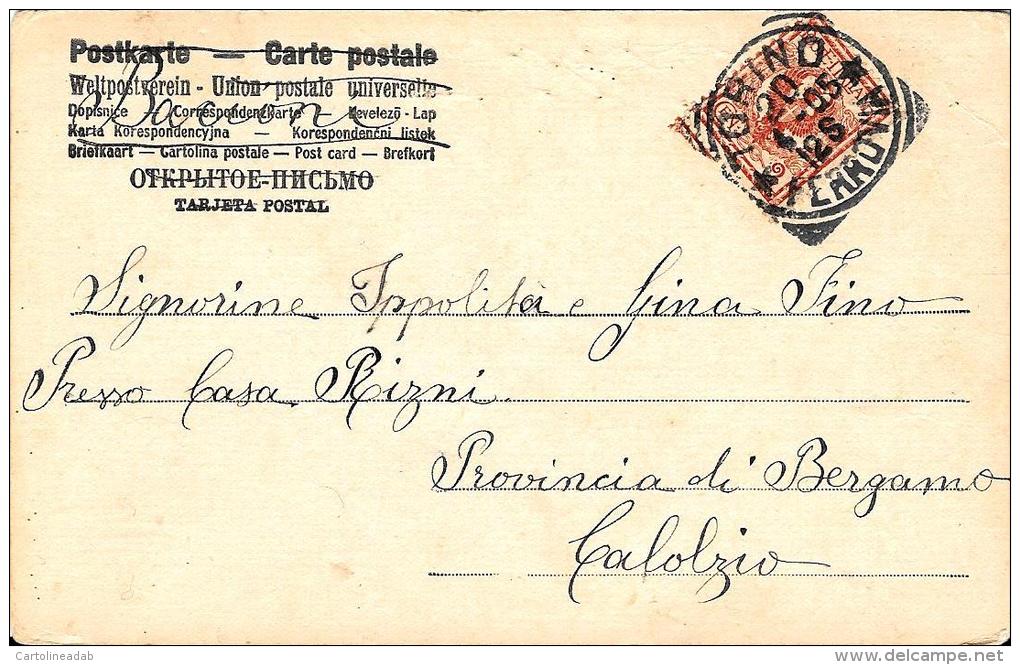 Postkarte — Carte postale
Weltpostverein - Union postale universelle
Dopisnice — Correspondenzkarte — Levelező - Lap
Karta Korespondencyjna — Korespondenční listek
Briefkaart — Cartolina postale — Post card — Brefkort
ОТКРЫТОЕ-ПИСЬМО
TARJETA POSTAL
Bacioni
TORINO
20
05
12S
FERROVIA
Signorine Ippolita e Gina Fino
Presso Casa Rizni
Provincia di Bergamo
Calolzio
Cartolineadab
delcampe.net